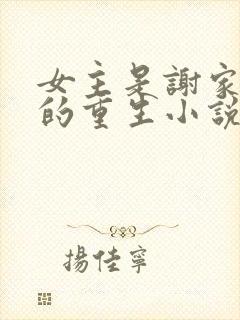 女主是謝家
的重生小說
揚佳寧